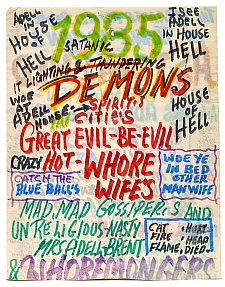 1985
ADELL
IN
HOUSE
OF
HELL
I SEE
ADELL
IN HOUSE
HELL
SATANIC
IT LIGHTING & THUNDERING
DEMONS
WOE
AT
ADELL
HOUSE
SPIRIT'
CITIES
HOUSE
OF
HELL
GREAT EVIL-BE-EVIL
CRAZY HOT-WHORE
WIFES
CATCH THE
BLUE BALL'S
WOE YE
IN BED
OTHER
MAN WIFE
MAD, MAD GOSSIPERS AND
UNRELIGIOUS-NASTY
MRS ADELL-BRENT
CAT
FIRE
FLAME,
HURT
HEAD
DIED
& WHOREMONGERS